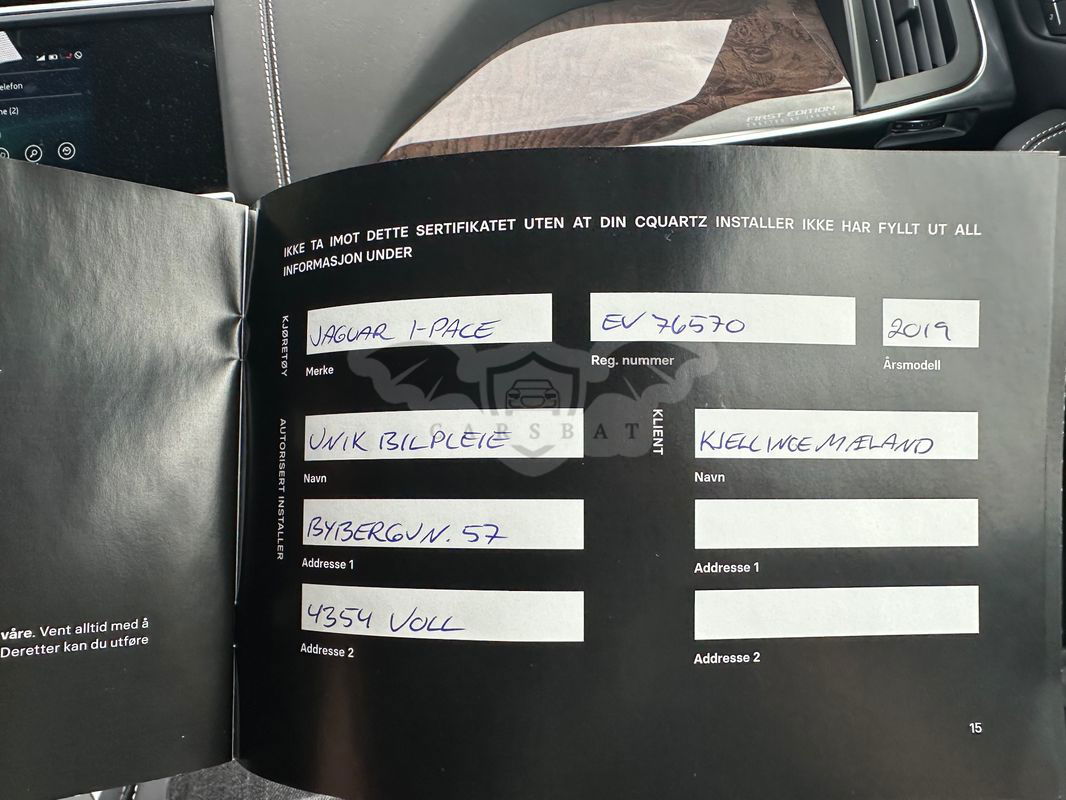 elefon
ne (2)
FIRST EDITION
IKKE TA IMOT DETTE SERTIFIKATET UTEN AT DIN CQUARTZ INSTALLER IKKE HAR FYLLT UT ALL
INFORMASJON UNDER
KJØRETØY
JAGUAR I-PACE
Merke
EV 76570
Reg. nummer
2019
Årsmodell
CARSBAT
AUTORISERT INSTALLER
UNIK BILPLEIE
Navn
BYBERGVN. 57
Addresse 1
4354 VOLL
Addresse 2
KLIENT
KJELL INGE MÆLAND
Navn
Addresse 1
Addresse 2
våre. Vent alltid med å
Deretter kan du utføre
15